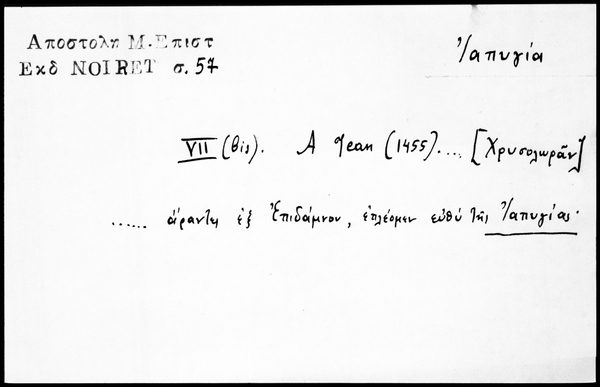 Αποστολη Μ. Επιστ
Εκδ NOIRET σ. 57
Ἰαπυγία
VII (bis). A Jean (1455).... [Χρυσολωρᾶν]
...... ἄραντες ἐξ Ἐπιδάμνου, ἐπλέομεν εὐθύ τῆς Ἰαπυγίας·